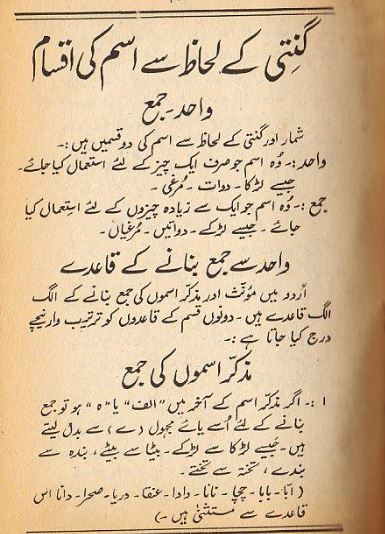 گنتی کے لحاظ سے اسم کی اقسام
واحد۔جمع
شمار اور گنتی کے لحاظ سے اسم کی دو قسمیں ہیں :۔
واحد:۔ وُہ اسم جو صرف ایک چیز کے لئے استعمال کیا جائے۔
جیسے لڑکا۔ دوات۔ مُرغی۔
جمع :۔ وُہ اسم جو ایک سے زیادہ چیزوں کے لئے اِستعمال کیا
جائے۔ جیسے لڑکے۔ دواتیں۔ مُرغیاں۔
واحد سے جمع بنانے کے قاعدے
اُردو میں مؤنّث اور مذکّر اسموں کی جمع بنانے کے الگ
الگ قاعدے ہیں۔ دونوں قسم کے قاعدوں کو ترتیب وار نیچے
درج کیا جاتا ہے :۔
مذکّر اسموں کی جمع
۱ :۔ اگر مذکّر اسم کے آخر میں "الف" یا "ہ" ہو تو جمع
بنانے کے لئے اُسے یائے مجہول (ے) سے بدل لیتے
ہیں۔ جَیسے لڑکا سے لڑکے۔ بیٹا سے بیٹے، بندہ سے
بندے، تختہ سے تختے۔
(ابّا۔ بابا۔ چچا۔ نانا۔ دادا۔ عنقا۔ دریا۔ صحرا۔ دانا اس
قاعدے سے مستثنیٰ ہیں۔)